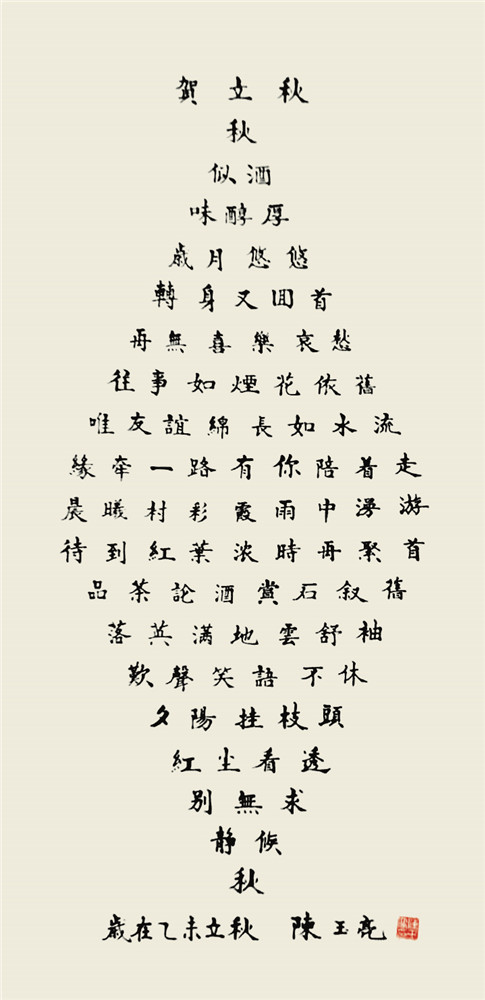 賀立秋
秋
似酒
味醇厚
歲月悠悠
轉身又囬首
再無喜樂哀愁
往事如煙花依舊
唯友誼綿長如水流
緣牽一路有你陪着走
晨曦村彩霞雨中漫游
待到紅葉浓時再聚首
品茶論酒賞石叙舊
落英滿地雲舒袖
歎聲笑語不休
夕陽挂枝頭
紅尘看透
别無求
靜候
秋
歲在乙未立秋 陳玉亮